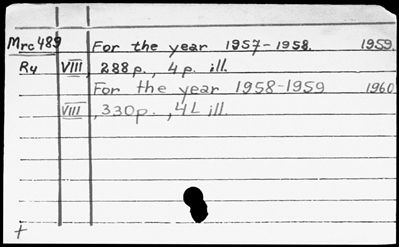 Mrc489 For the year 1957-1958. 1959.
Ry VIII, 288 p., 4 p. ill.
For the year 1958-1959 1960
VIII, 330 p., 4 L ill.
+